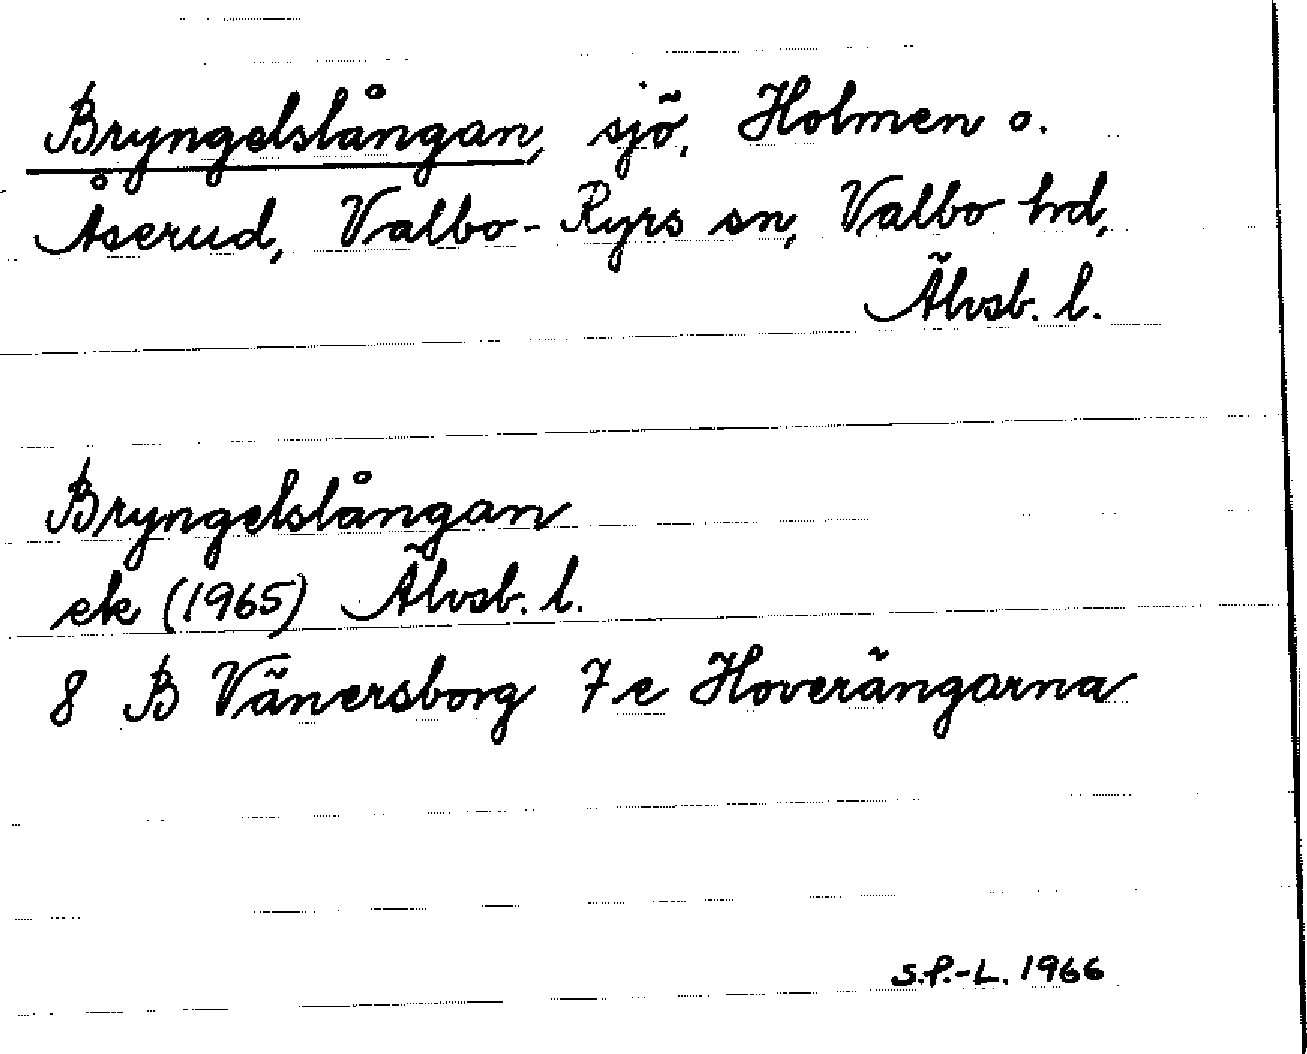 Bryngelslångan, sjö, Holmen o.
Åserud, Valbo-Ryrs sn, Valbo hd,
Älvsb. l.
Bryngelslångan
ek (1965) Älvsb. l.
8 B Vänersborg 7 e Hoverängarna
S.P.-L. 1966